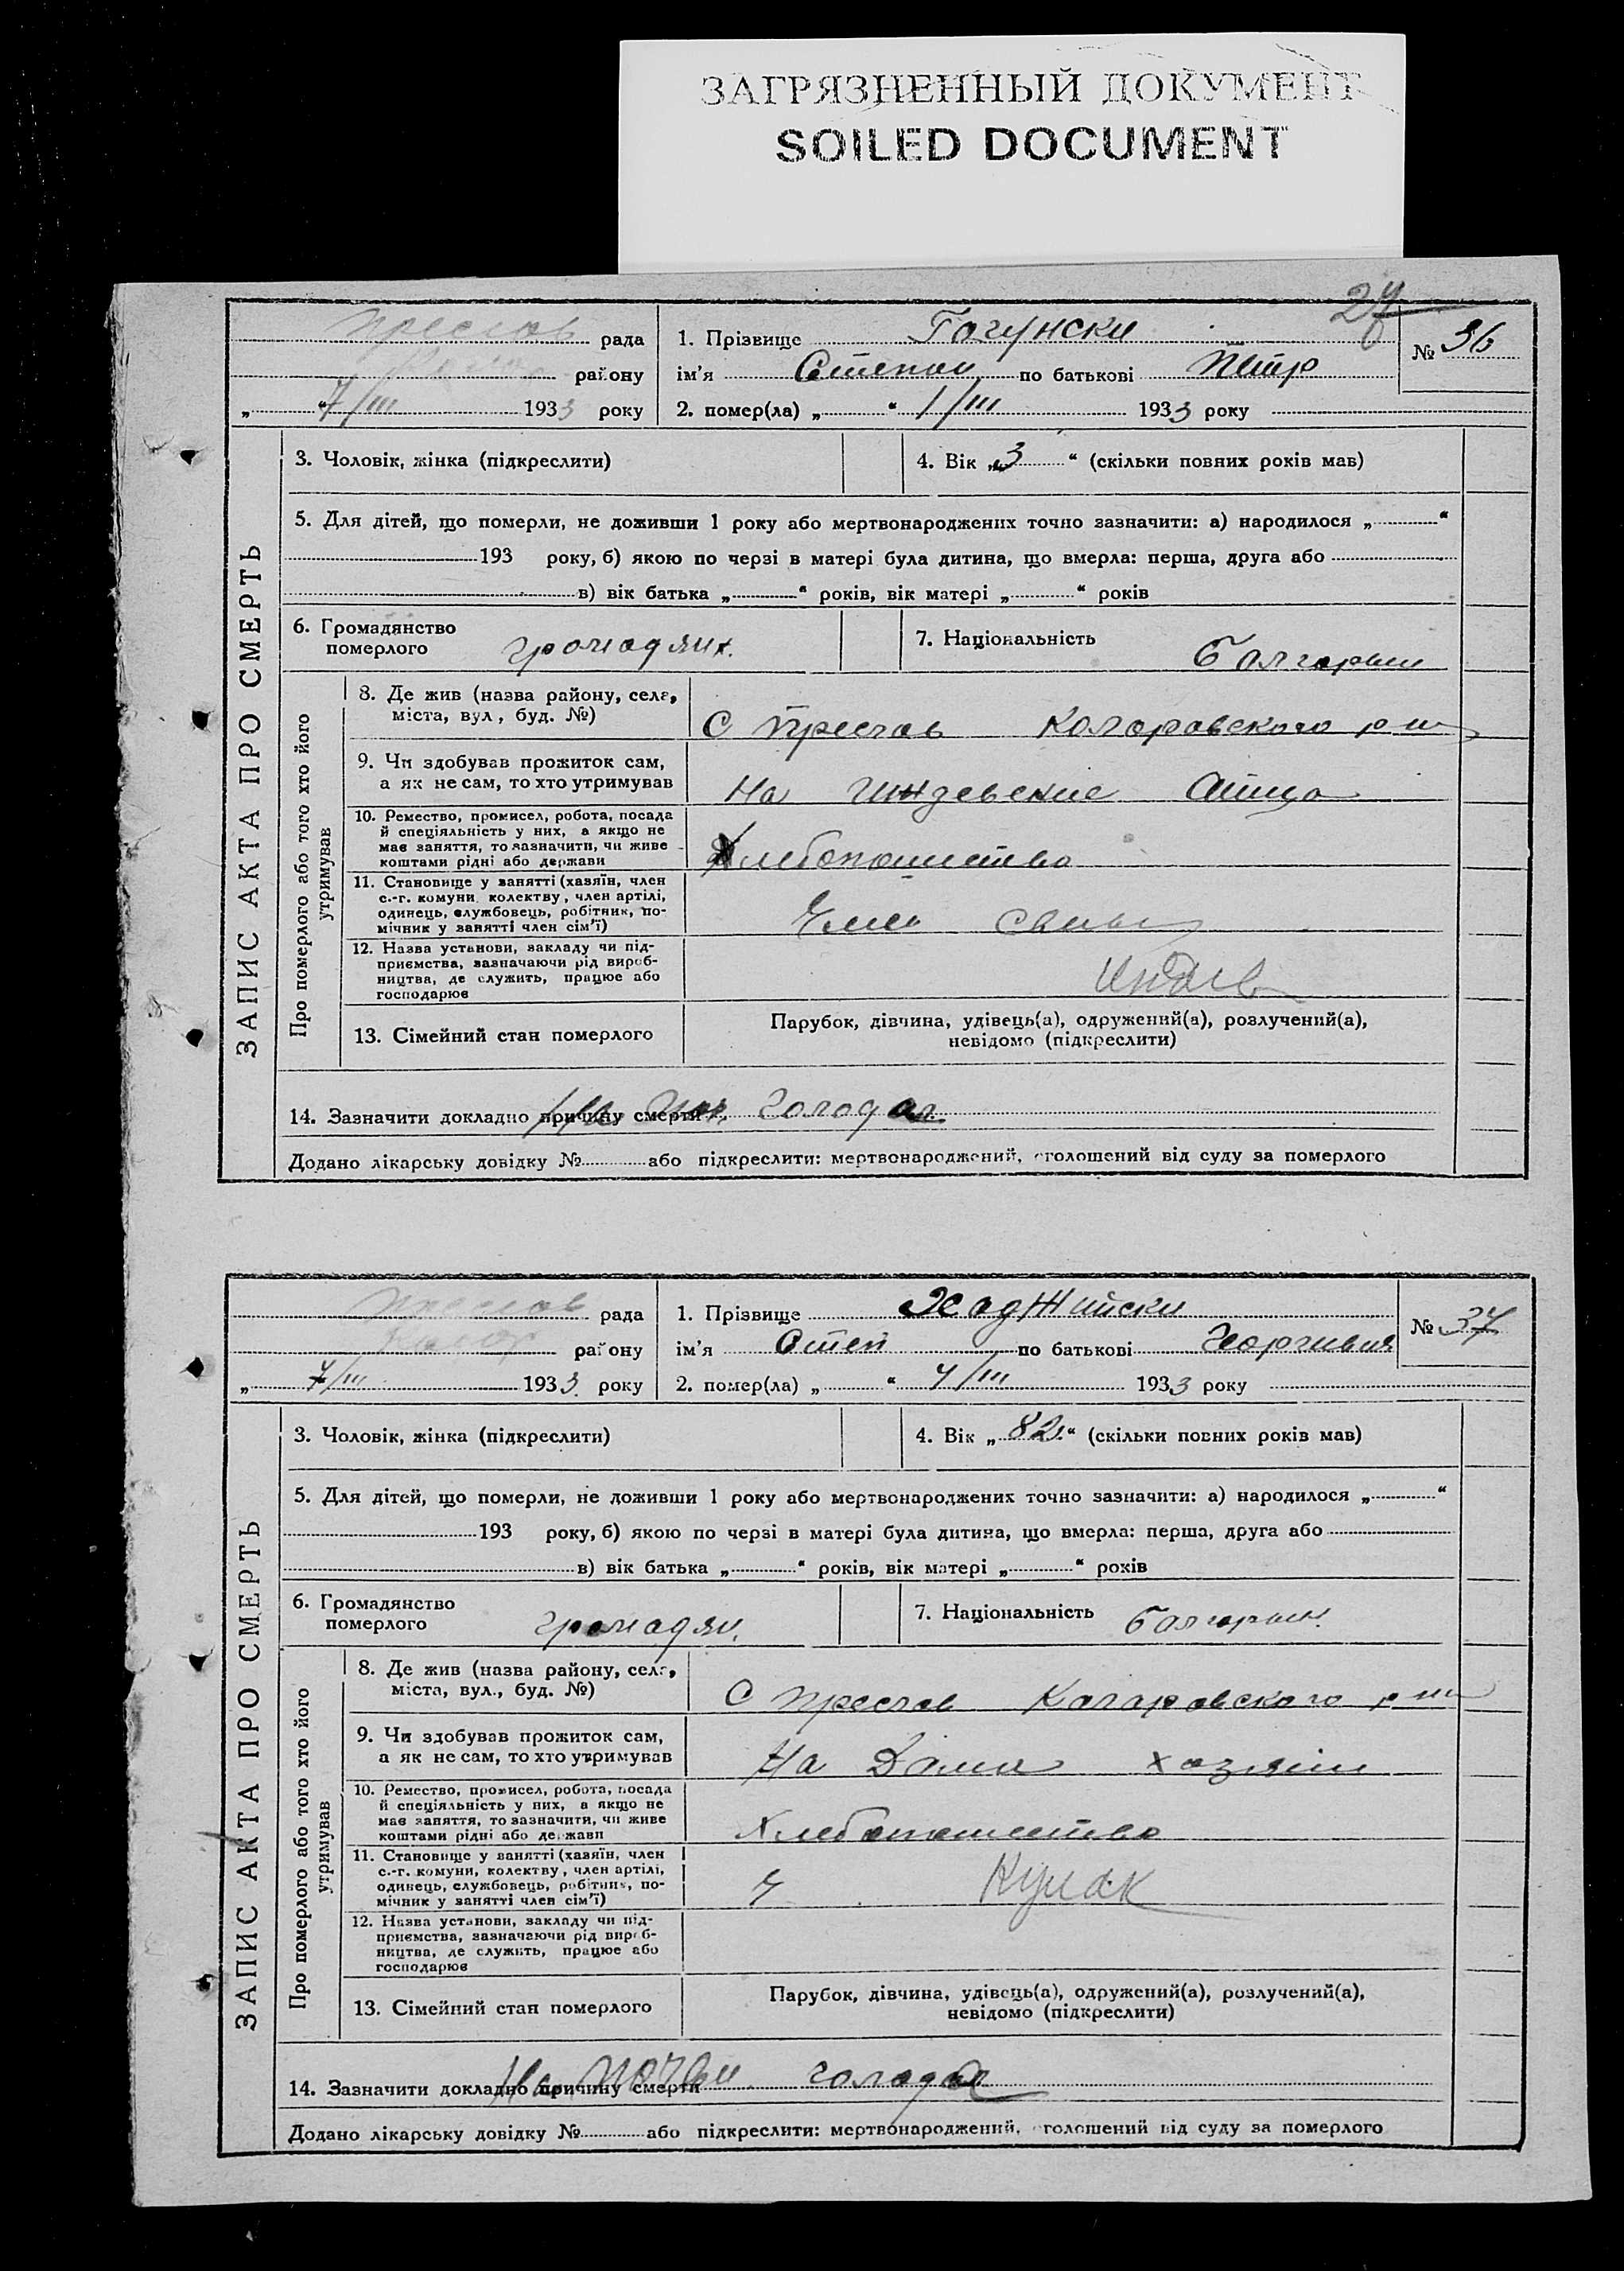 ЗАГРЯЗНЕННЫЙ ДОКУМЕНТ
SOILED DOCUMENT
27
Преслав рада
району
„ “ 7/III 1933 року
1. Прізвище Гагунски
№ 36
ім'я Степан по батькові Петр
2. помер(ла) „ “ 1/III 1933 року
ЗАПИС АКТА ПРО СМЕРТЬ
3. Чоловік, жінка (підкреслити)
4. Вік „3“ (скільки повних років мав)
5. Для дітей, що померли, не доживши 1 року або мертвонароджених точно зазначити: а) народилося „ “
193 року, б) якою по черзі в матері була дитина, що вмерла: перша, друга або
в) вік батька „ “ років, вік матері „ “ років
6. Громадянство
померлого громадян.
7. Національність Болгарин
Про померлого або того хто його
утримував
8. Де жив (назва району, села,
міста, вул, буд. №)
С Преслав Коларовского р на
9. Чи здобував прожиток сам,
а як не сам, то хто утримував
На отца
10. Ремество, промисел, робота, посада
й спеціяльність у них, а якщо не
має заняття, то зазначити, чи живе
коштами рідні або держави
Хлебопашество
11. Становище у занятті (хазяїн, член
с.-г. комуни, колектву, член артілі,
одинець, службовець, робітник, по-
мічник у занятті член сім'ї)
Член
12. Назва установи, закладу чи під-
приємства, зазначаючи рід вироб-
ництва, де служить, працює або
господарює
13. Сімейний стан померлого
Парубок, дівчина, удівець(а), одружений(а), розлучений(а),
невідомо (підкреслити)
14. Зазначити докладно причину смерти голода
Додано лікарську довідку № або підкреслити: мертвонароджений, оголошений від суду за померлого
Преслав рада
Колар району
„ “ 7/III 1933 року
1. Прізвище Хаджийски
№ 37
ім'я Степ по батькові Георгиевич
2. помер(ла) „ “ 4/III 1933 року
ЗАПИС АКТА ПРО СМЕРТЬ
3. Чоловік, жінка (підкреслити)
4. Вік „82“ (скільки повних років мав)
5. Для дітей, що померли, не доживши 1 року або мертвонароджених точно зазначити: а) народилося „ “
193 року, б) якою по черзі в матері була дитина, що вмерла: перша, друга або
в) вік батька „ “ років, вік матері „ “ років
6. Громадянство
померлого громадян.
7. Національність Болгарин.
Про померлого або того хто його
утримував
8. Де жив (назва району, села,
міста, вул., буд. №)
С Преслав Коларовского р на
9. Чи здобував прожиток сам,
а як не сам, то хто утримував
На хозяин
10. Ремество, промисел, робота, посада
й спеціяльність у них, а якщо не
має заняття, то зазначити, чи живе
коштами рідні або держави
Хлебопашество
11. Становище у занятті (хазяїн, член
с.-г. комуни, колектву, член артілі,
одинець, службовець, робітник, по-
мічник у занятті член сім'ї)
Кулак
12. Назва установи, закладу чи під-
приємства, зазначаючи рід вироб-
ництва, де служить, працює або
господарює
13. Сімейний стан померлого
Парубок, дівчина, удівець(а), одружений(а), розлучений(а),
невідомо (підкреслити)
14. Зазначити докладно причину смерти На почви голода
Додано лікарську довідку № або підкреслити: мертвонароджений, оголошений від суду за померлого